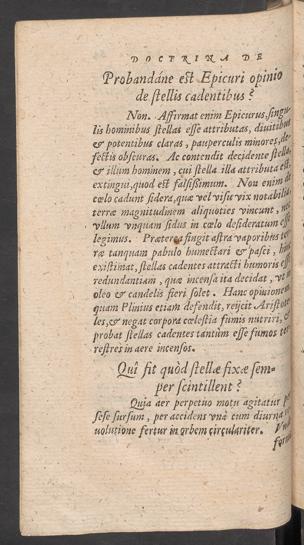 DOCTRINA DE
Probandáne est Epicuri opinio
de stellis cadentibus?
Non. Affirmat enim Epicurus, singu-
lis hominibus stellas esse attributas, diuitibus
& potentibus claras, pauperculis minores, de-
fectis obscuras. Ac contendit decidente stella,
& illum hominem, cui stella illa attributa est,
extingui, quod est falsißimum. Non enim è
cœlo cadunt sidera, quæ vel visu vix notabilia,
terræ magnitudinem aliquoties vincunt, nec
vllum vnquam sidus in cœlo desideratum esse
legimus. Præterea fingit astra vaporibus ter-
ræ tanquam pabulo humectari & pasci, hinc
existimat, stellas cadentes attracti humoris esse
redundantiam, quæ incensa ita decidat, vt in
oleo & candelis fieri solet. Hanc opinionem
quam Plinius etiam defendit, reijcit Aristote-
les, & negat corpora cœlestia fumis nutriri, &
probat stellas cadentes tantùm esse fumos ter-
restres in aere incensos.
Quî fit quòd stellæ fixæ sem-
per scintillent?
Quia aer perpetuo motu agitatur per
sese sursum, per accidens vnà cum diurna re-
uolutione fertur in orbem circulariter.